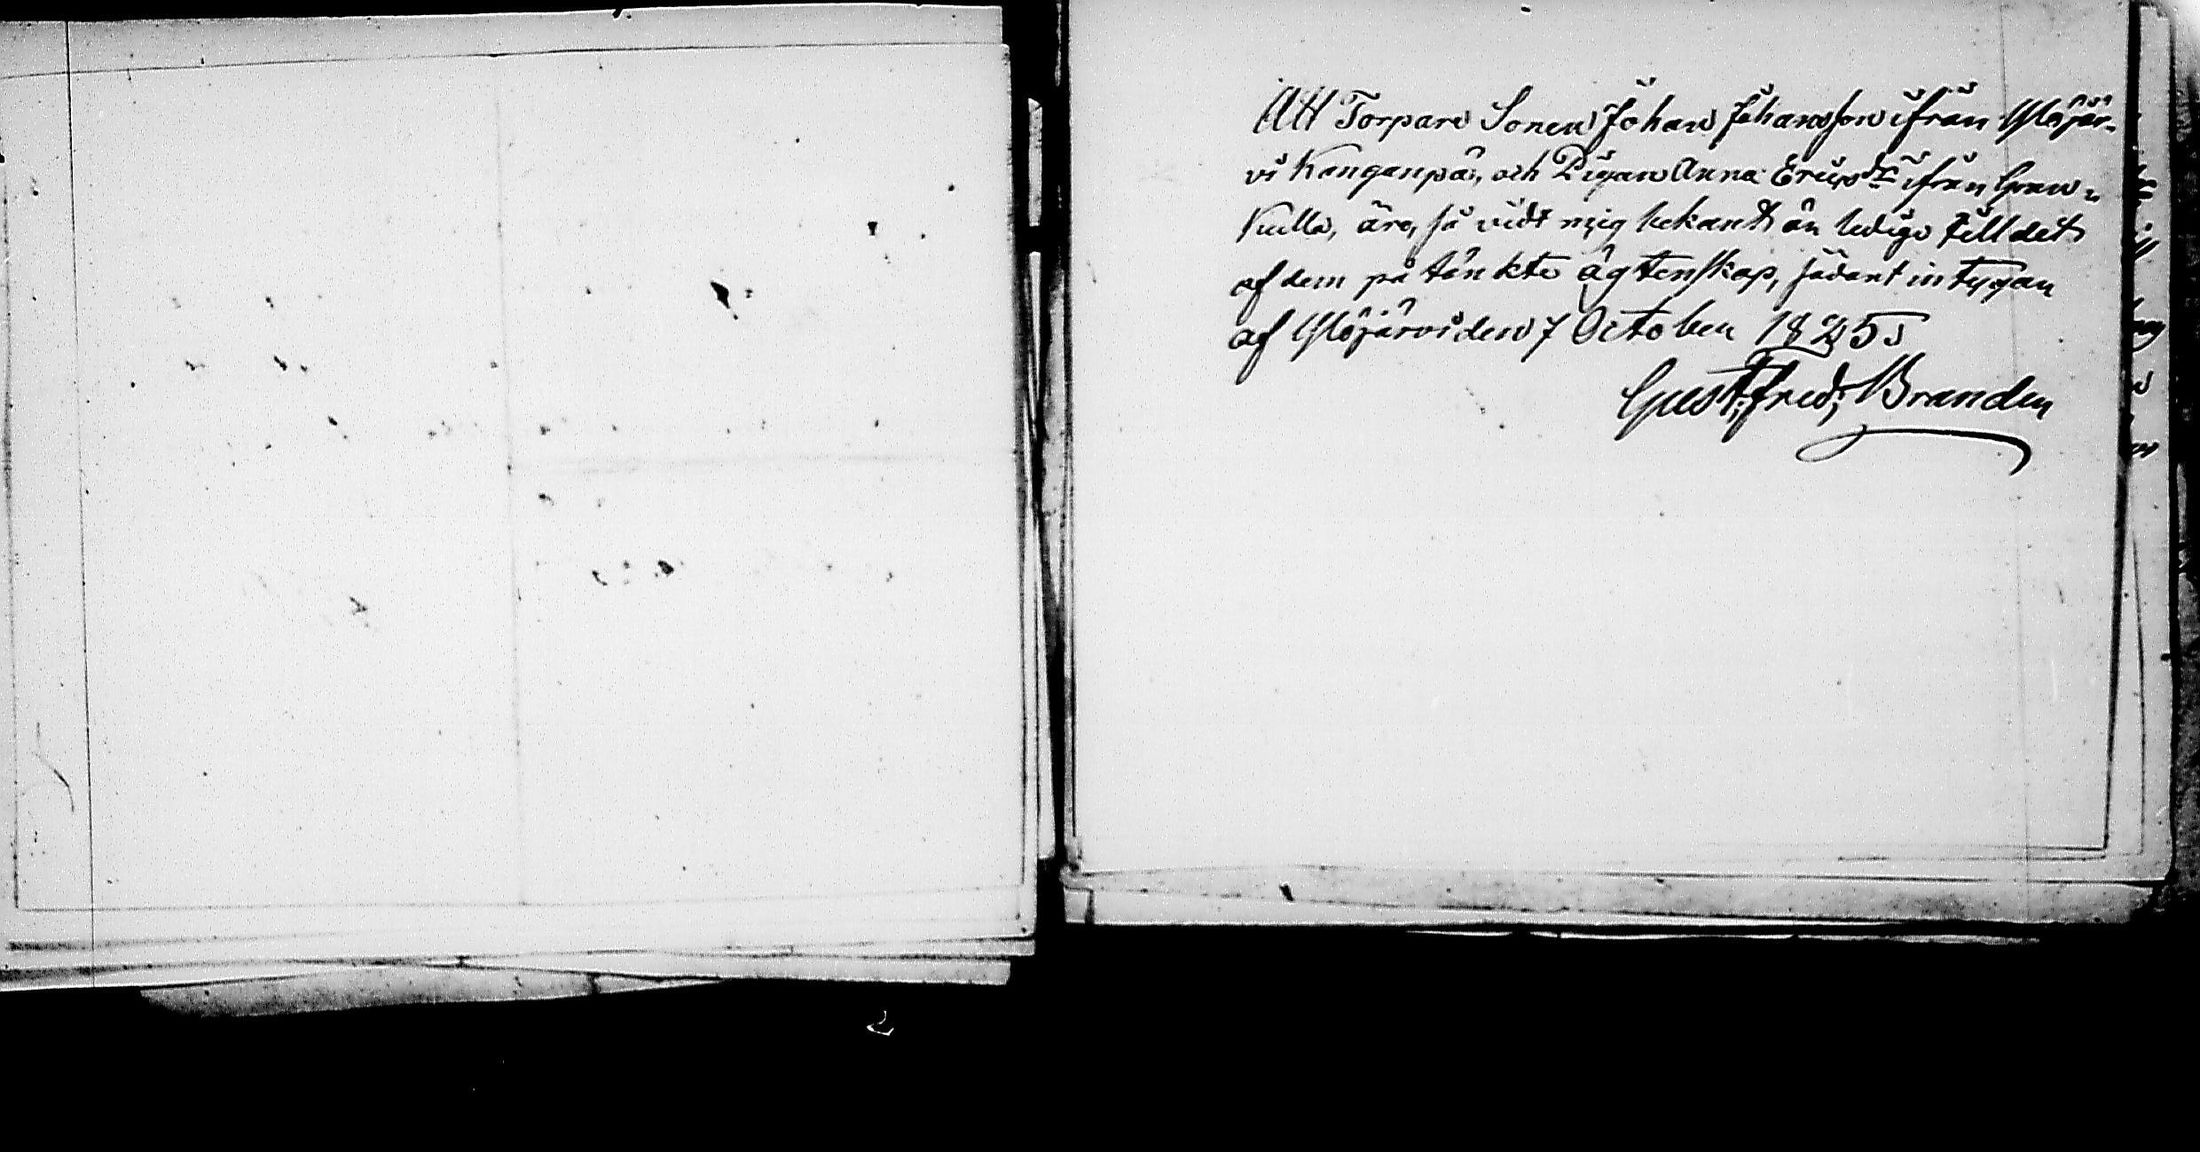 Att Torpare Sonen Johan Johansson ifrån Ylöjär-
vi Kanganpä, och Pigan Anna Ericsdr ifrån Graw-
kulla, äro, så vidt mig bekant än ledige till det
af dem på tänkte ägtenskap, sådant intygan
af Ylöjärvi den 7 October 1825
Gust: fred: Branden